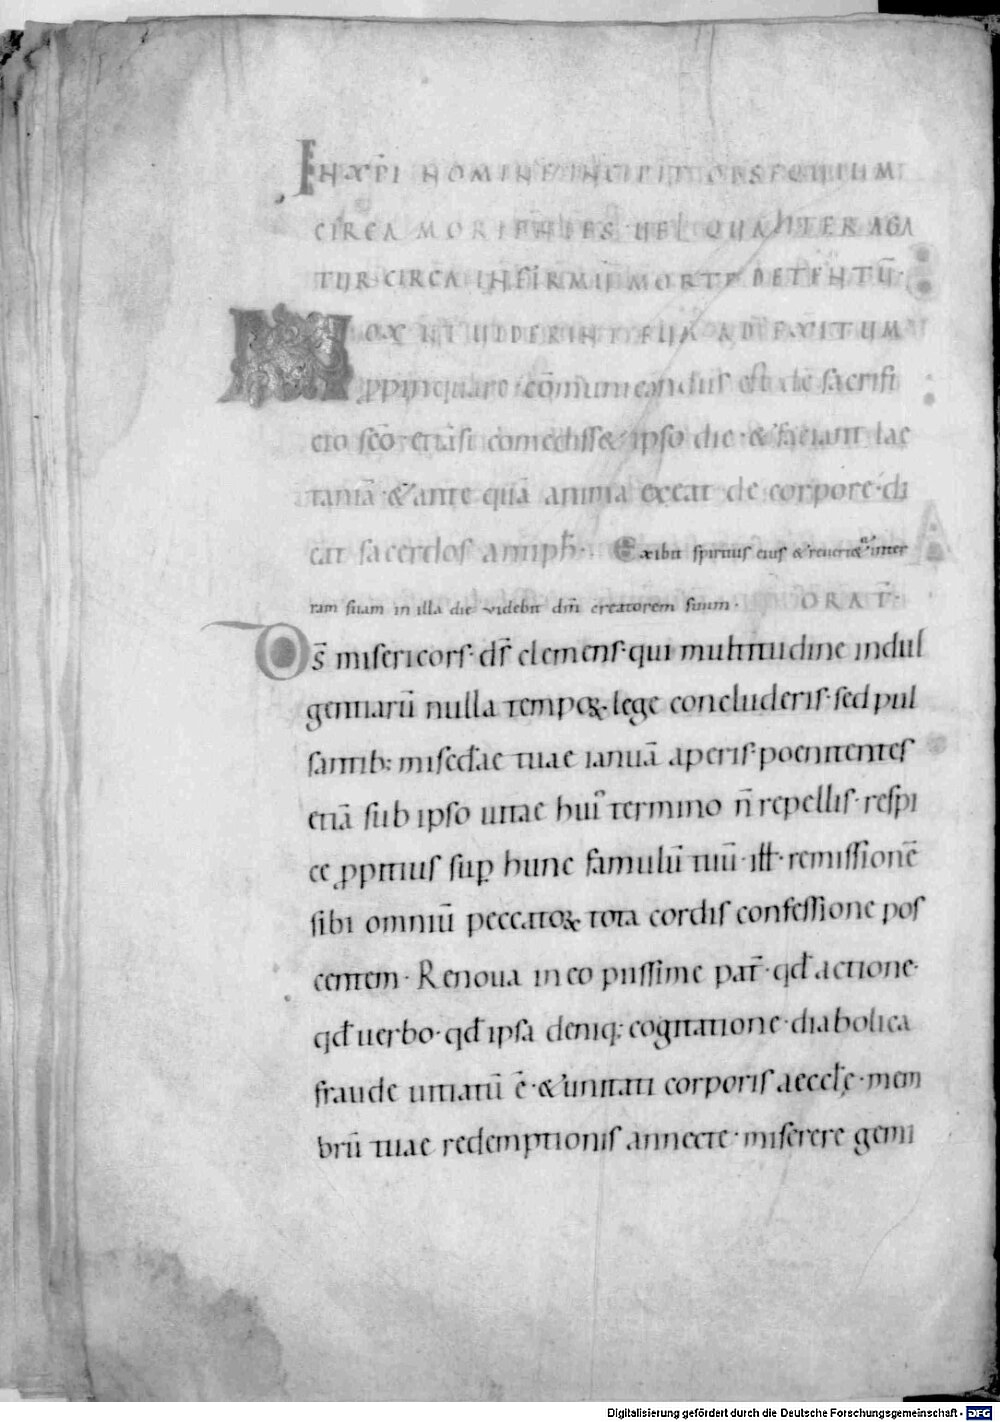 IN XP̄I NOMINE INCIPIT OBSEQUIUM
CIRCA MORIENTES UEL QUALITER AGA
TUR CIRCA INFIRMŪ MORTE DETENTŪ·
MOX UT UIDERINT EUM AD EXITUM
ꝓpinquare· cōmunicandus est de sacrifi
cio scō· etiāsi comedisset ipso die· & faciant lae
taniā· & ante quā anima exeat de corpore· di
cat sacerdos antiph̄· Exibit spiritus eius & reuertetur inter
ram suam in illa die videbit dm̄ creatorem suum· ORAT̄·
Ds̄ misericors· ds̄ clemens· qui multitudine indul
gentiarū nulla tempoꝝ· lege concluderis· sed pul
santib; misedae tuae ianuā aperis· poenitentes
etiā sub ipso uitae hui᷒ termino n̄ repellis· respi
ce ꝓpitius suꝑ hunc famulū tuū· ill̄· remissionē
sibi omniū peccatoꝝ tota cordis confessione pos
centem· Renoua in eo piissime pat̄· qd̄ actione·
qd̄ uerbo· qd̄ ipsa deniq; cogitatione· diabolica
fraude uitiatū ē· & unitati corporis aeccl̄ę· mem
brū tuae redemptionis annecte· miserere gemi
Digitalisierung gefördert durch die Deutsche Forschungsgemeinschaft - DFG